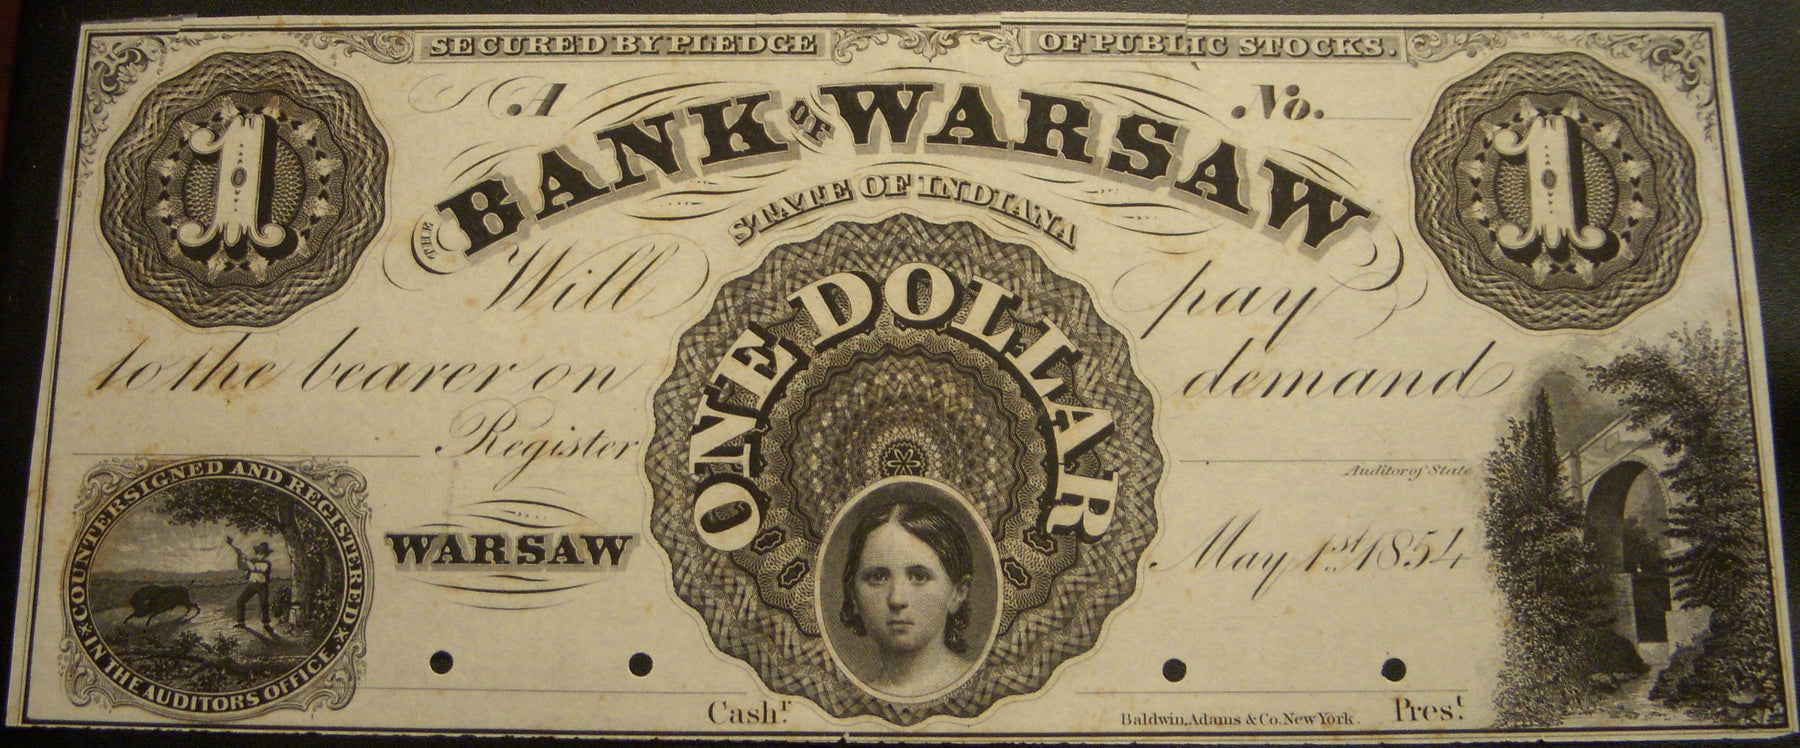 SECURED BY PLEDGE OF PUBLIC STOCKS.
1 A No. 1
THE BANK OF WARSAW
STATE OF INDIANA
Will pay
to the bearer on demand
ONE DOLLAR
Register
Auditor of State
COUNTERSIGNED AND REGISTERED
IN THE AUDITORS OFFICE.
WARSAW
May 1st. 1854
Cashr.
Baldwin, Adams & Co. New York.
Prest.